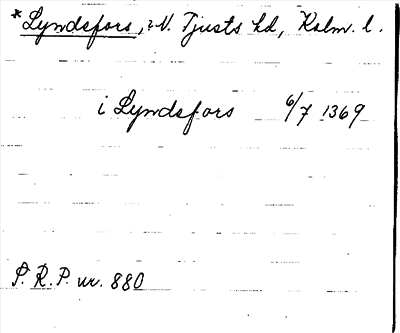 *Lyndsfors, ? N. Tjusts hd, Kalm. l.
i Lyndsfors 6/7 1369
P. R. P. nr. 880